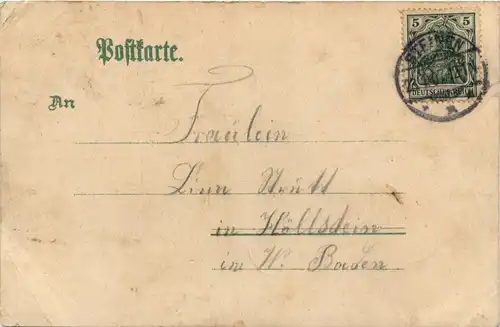 Postkarte.
5 5
STEINEN
DEUTSCHES REICH
An
Fräulein
Lina Strütt
in Höllstein
im W. Baden